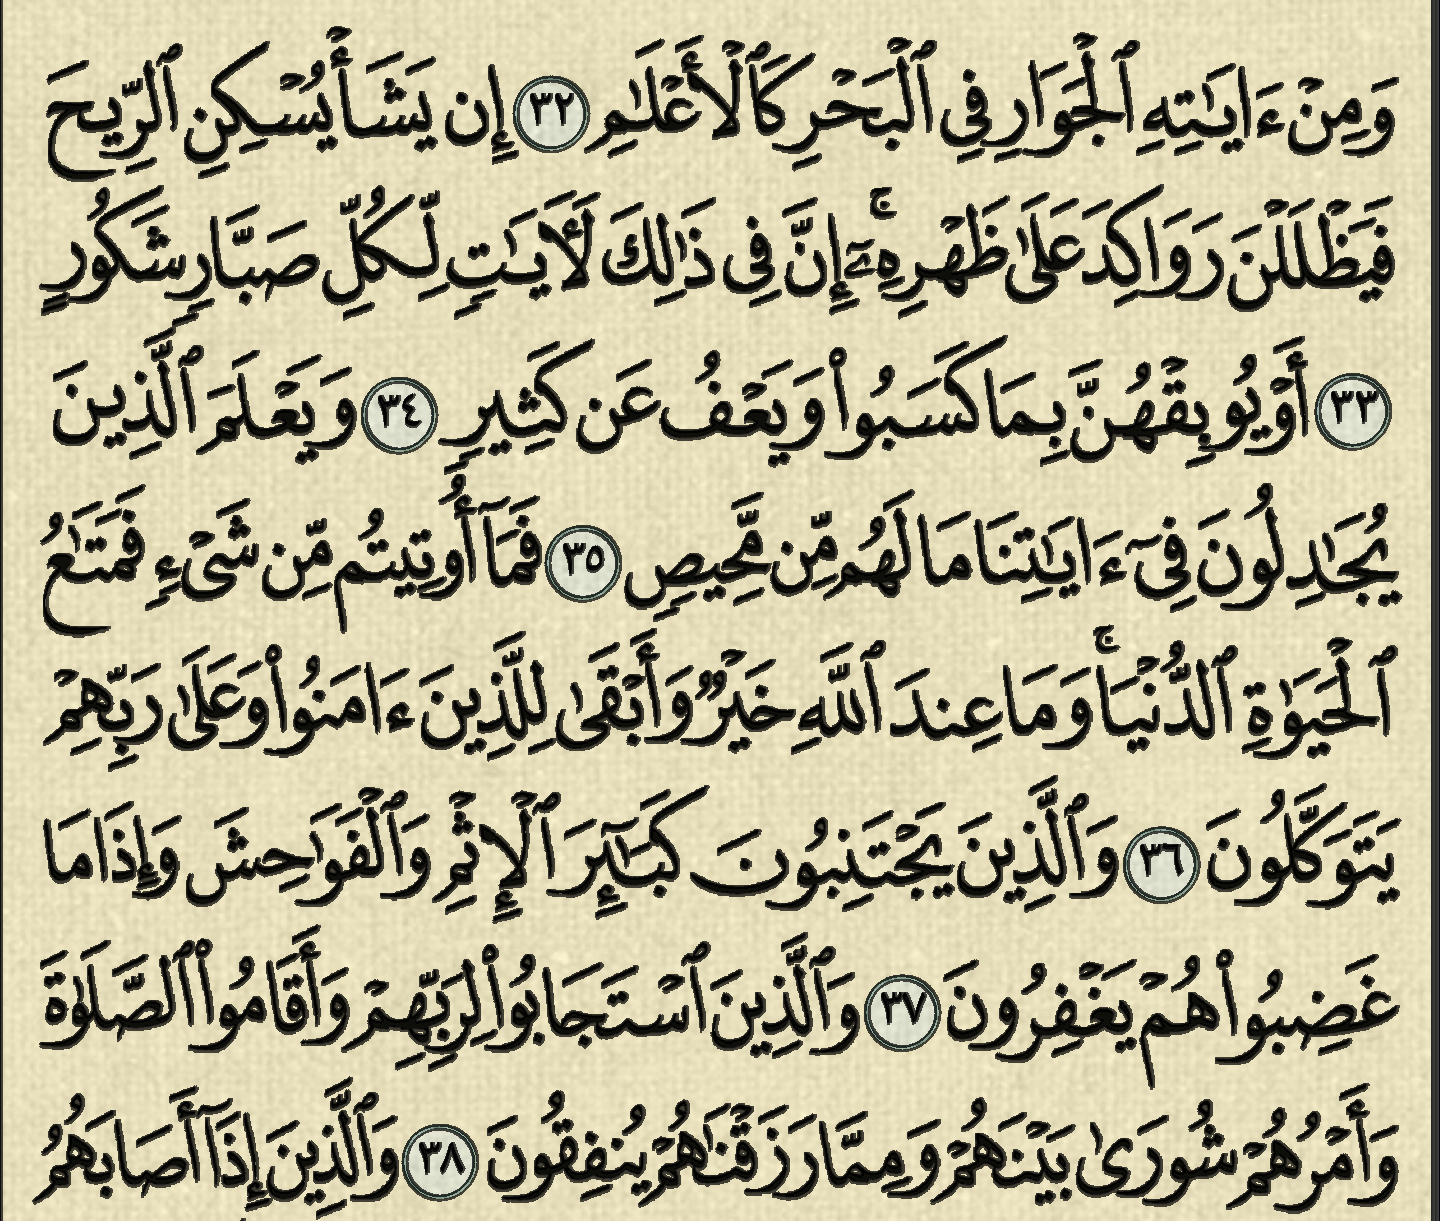 وَمِنْ ءَايَٰتِهِ ٱلْجَوَارِ فِى ٱلْبَحْرِ كَٱلْأَعْلَٰمِ ٣٢ إِن يَشَأْ يُسْكِنِ ٱلرِّيحَ
فَيَظْلَلْنَ رَوَاكِدَ عَلَىٰ ظَهْرِهِۦٓ ۚ إِنَّ فِى ذَٰلِكَ لَأٓيَٰتٍ لِّكُلِّ صَبَّارٍ شَكُورٍ
٣٣ أَوْ يُوبِقْهُنَّ بِمَا كَسَبُوا۟ وَيَعْفُ عَن كَثِيرٍ ٣٤ وَيَعْلَمَ ٱلَّذِينَ
يُجَٰدِلُونَ فِىٓ ءَايَٰتِنَا مَا لَهُم مِّن مَّحِيصٍ ٣٥ فَمَآ أُوتِيتُم مِّن شَىْءٍ فَمَتَٰعُ
ٱلْحَيَوٰةِ ٱلدُّنْيَا ۚ وَمَا عِندَ ٱللَّهِ خَيْرٌ وَأَبْقَىٰ لِلَّذِينَ ءَامَنُوا۟ وَعَلَىٰ رَبِّهِمْ
يَتَوَكَّلُونَ ٣٦ وَٱلَّذِينَ يَجْتَنِبُونَ كَبَٰٓئِرَ ٱلْإِثْمِ وَٱلْفَوَٰحِشَ وَإِذَا مَا
غَضِبُوا۟ هُمْ يَغْفِرُونَ ٣٧ وَٱلَّذِينَ ٱسْتَجَابُوا۟ لِرَبِّهِمْ وَأَقَامُوا۟ ٱلصَّلَوٰةَ
وَأَمْرُهُمْ شُورَىٰ بَيْنَهُمْ وَمِمَّا رَزَقْنَٰهُمْ يُنفِقُونَ ٣٨ وَٱلَّذِينَ إِذَآ أَصَابَهُمُ